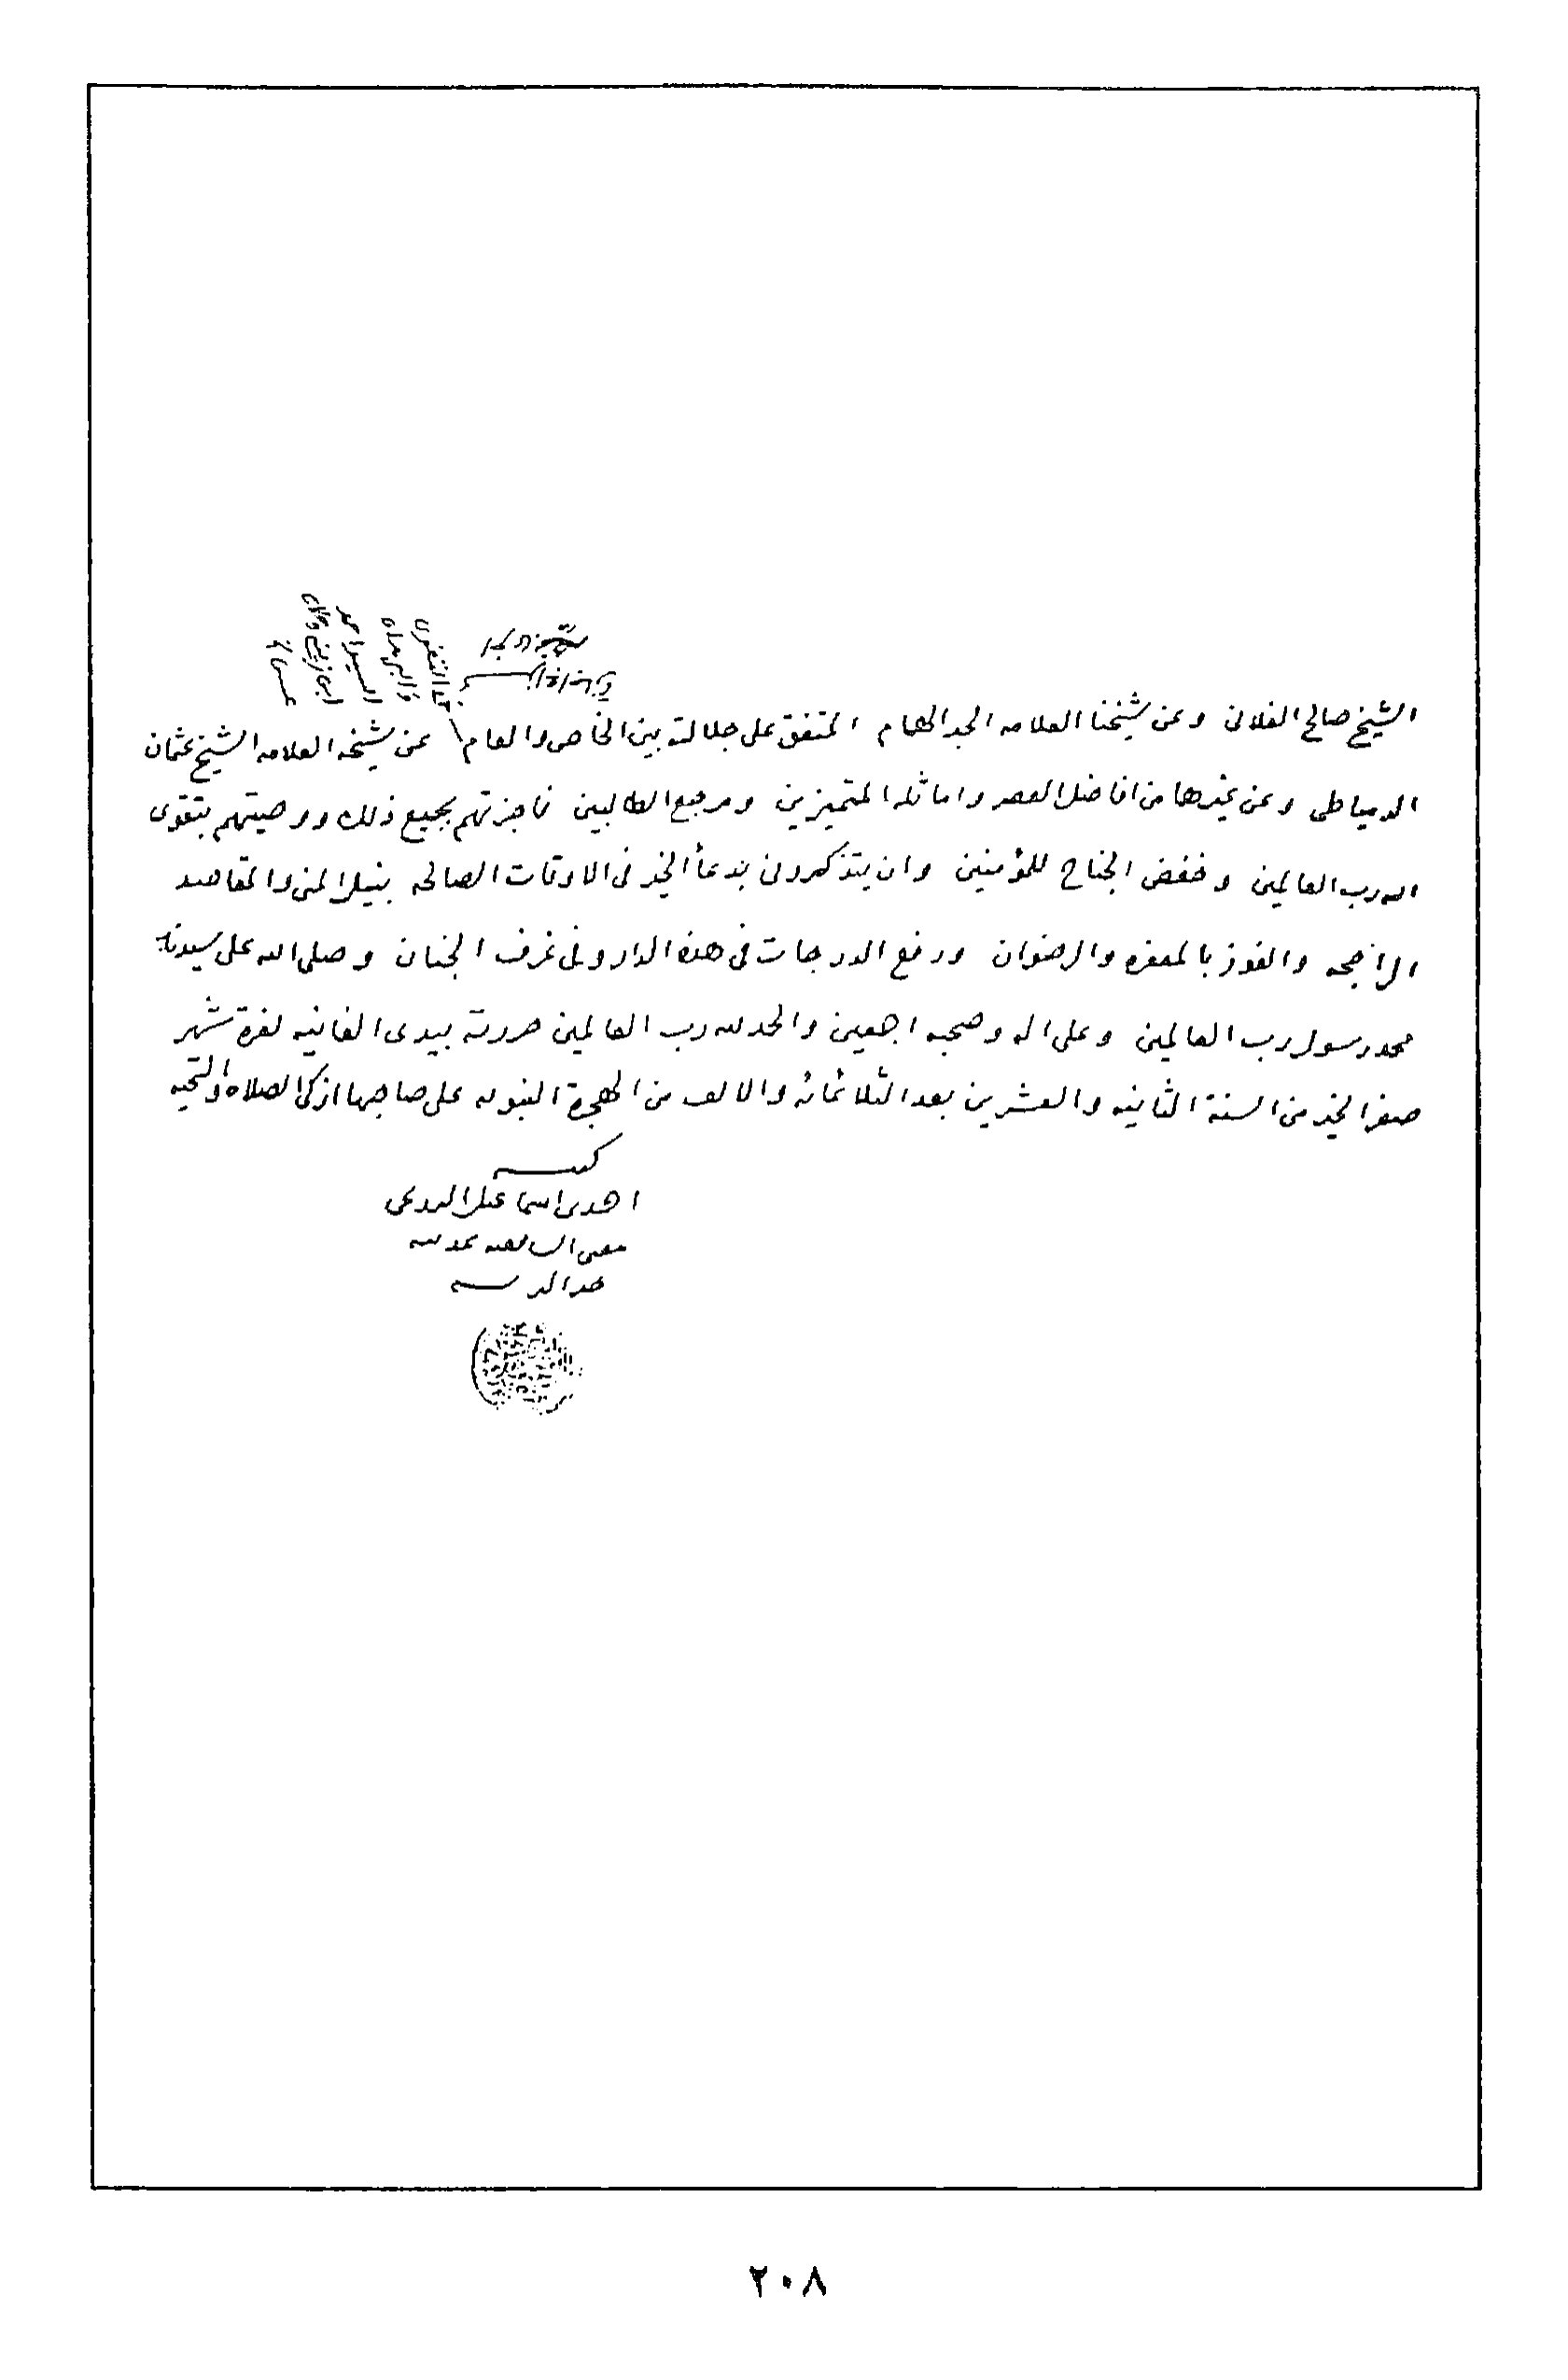 الشيخ صالح الفلانى وعن شيخنا العلامه الجد الهمام المتفق على جلالته بين الخاص والعام عن شيخه العلامه الشيخ عثمان
السيد احمد
ابن زينى دحلان
الدمياطى وعن غيرهما من افاضل العصر واماثله المتميزين ومرجع الطالبين فاجزتهم بجميع ذلك ووصيتهم بتقوى
الله رب العالمين وخفض الجناح للمؤمنين وان يتذكرونى بدعأ الخير فى الاوقات الصالحه بنيل المنى والمقاصد
الراجحه والفوز بالمغفره والرضوان ورفع الدرجات فى هذه الدار وفى غرف الجنان وصلى الله على سيدنا
محمد رسول رب العالمين وعلى اله وصحبه اجمعين والحمد لله رب العالمين حررته بيدى الفانيه لغرة شهر
صفر الخير من السنة الثانيه والعشرين بعد الثلاثمائه والالف من الهجرة النبويه على صاحبها ازكى الصلاه والتحيه
كتبه
احمد بن اسماعيل البرزنجى
مفتى الشافعيه بمدينة
٢٠٨